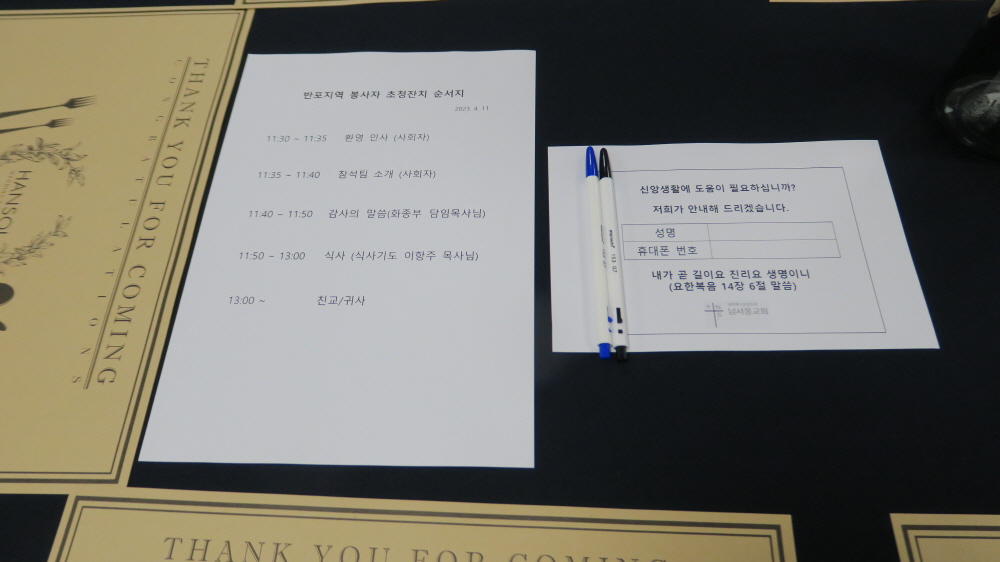 THANK YOU FOR COMING
CONGRATULATIONS
HANSOL
반포지역 봉사자 초청잔치 순서지
2023. 4. 11
11:30 ~ 11:35 환영 인사 (사회자)
11:35 ~ 11:40 참석팀 소개 (사회자)
11:40 ~ 11:50 감사의 말씀(화종부 담임목사님)
11:50 ~ 13:00 식사 (식사기도 이항주 목사님)
13:00 ~ 친교/귀사
신앙생활에 도움이 필요하십니까?
저희가 안내해 드리겠습니다.
성명
휴대폰 번호
내가 곧 길이요 진리요 생명이니
(요한복음 14장 6절 말씀)
남서울교회
THANK YOU FOR COMING